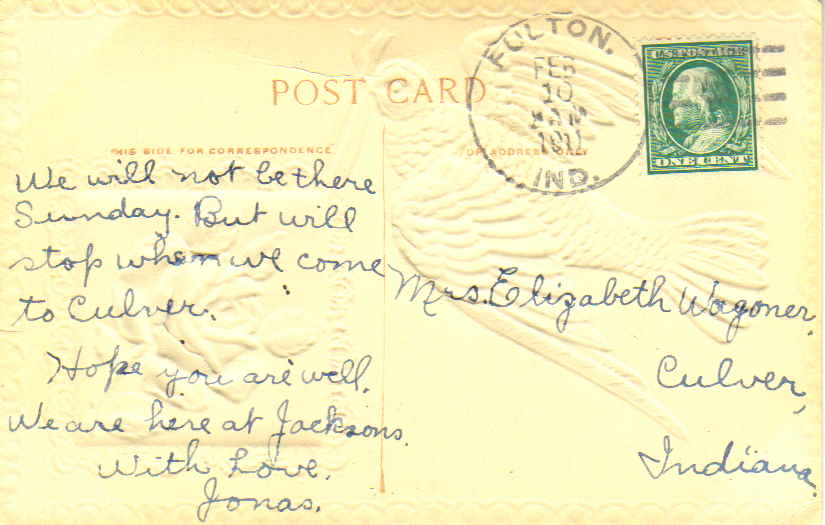 POST CARD
THIS SIDE FOR CORRESPONDENCE
FOR ADDRESS ONLY
FULTON.
FEB
10
1911
IND.
U.S. POSTAGE
ONE CENT
We will not be there
Sunday. But will
stop when we come
to Culver.
Hope you are well.
We are here at Jacksons.
With Love.
Jonas.
Mrs. Elizabeth Wagoner,
Culver,
Indiana.